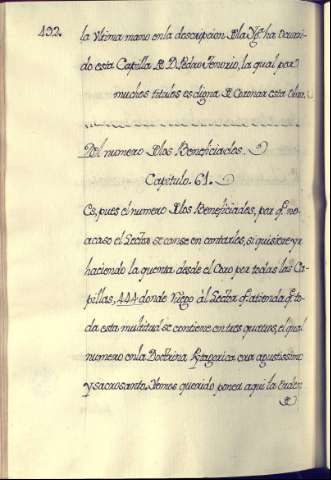 492.
la Vltima mano en la descripcion Dla Yg.ª ha Ocurri-
do esta Capilla De D. Pedro Tenorio, la qual por
muchos titulos es digna De Coronar esta Obra.
Del numero Dlos Beneficiados.
Capitulo. 61.
Es, pues el numero Dlos Beneficiados, por q.e no
acaso el Lector se canse en contarlos, si quisiere yr
haciendo la quenta desde el Coro por todas las Ca-
pillas, 444 donde Ruego àl Lector q.e atienda q.e to-
da esta multitud se contiene en tres quatros, el qual
numero en la Doctrina Pytagorica era agustissimo
y sacrosanto. Hemos querido poner aqui la Orden